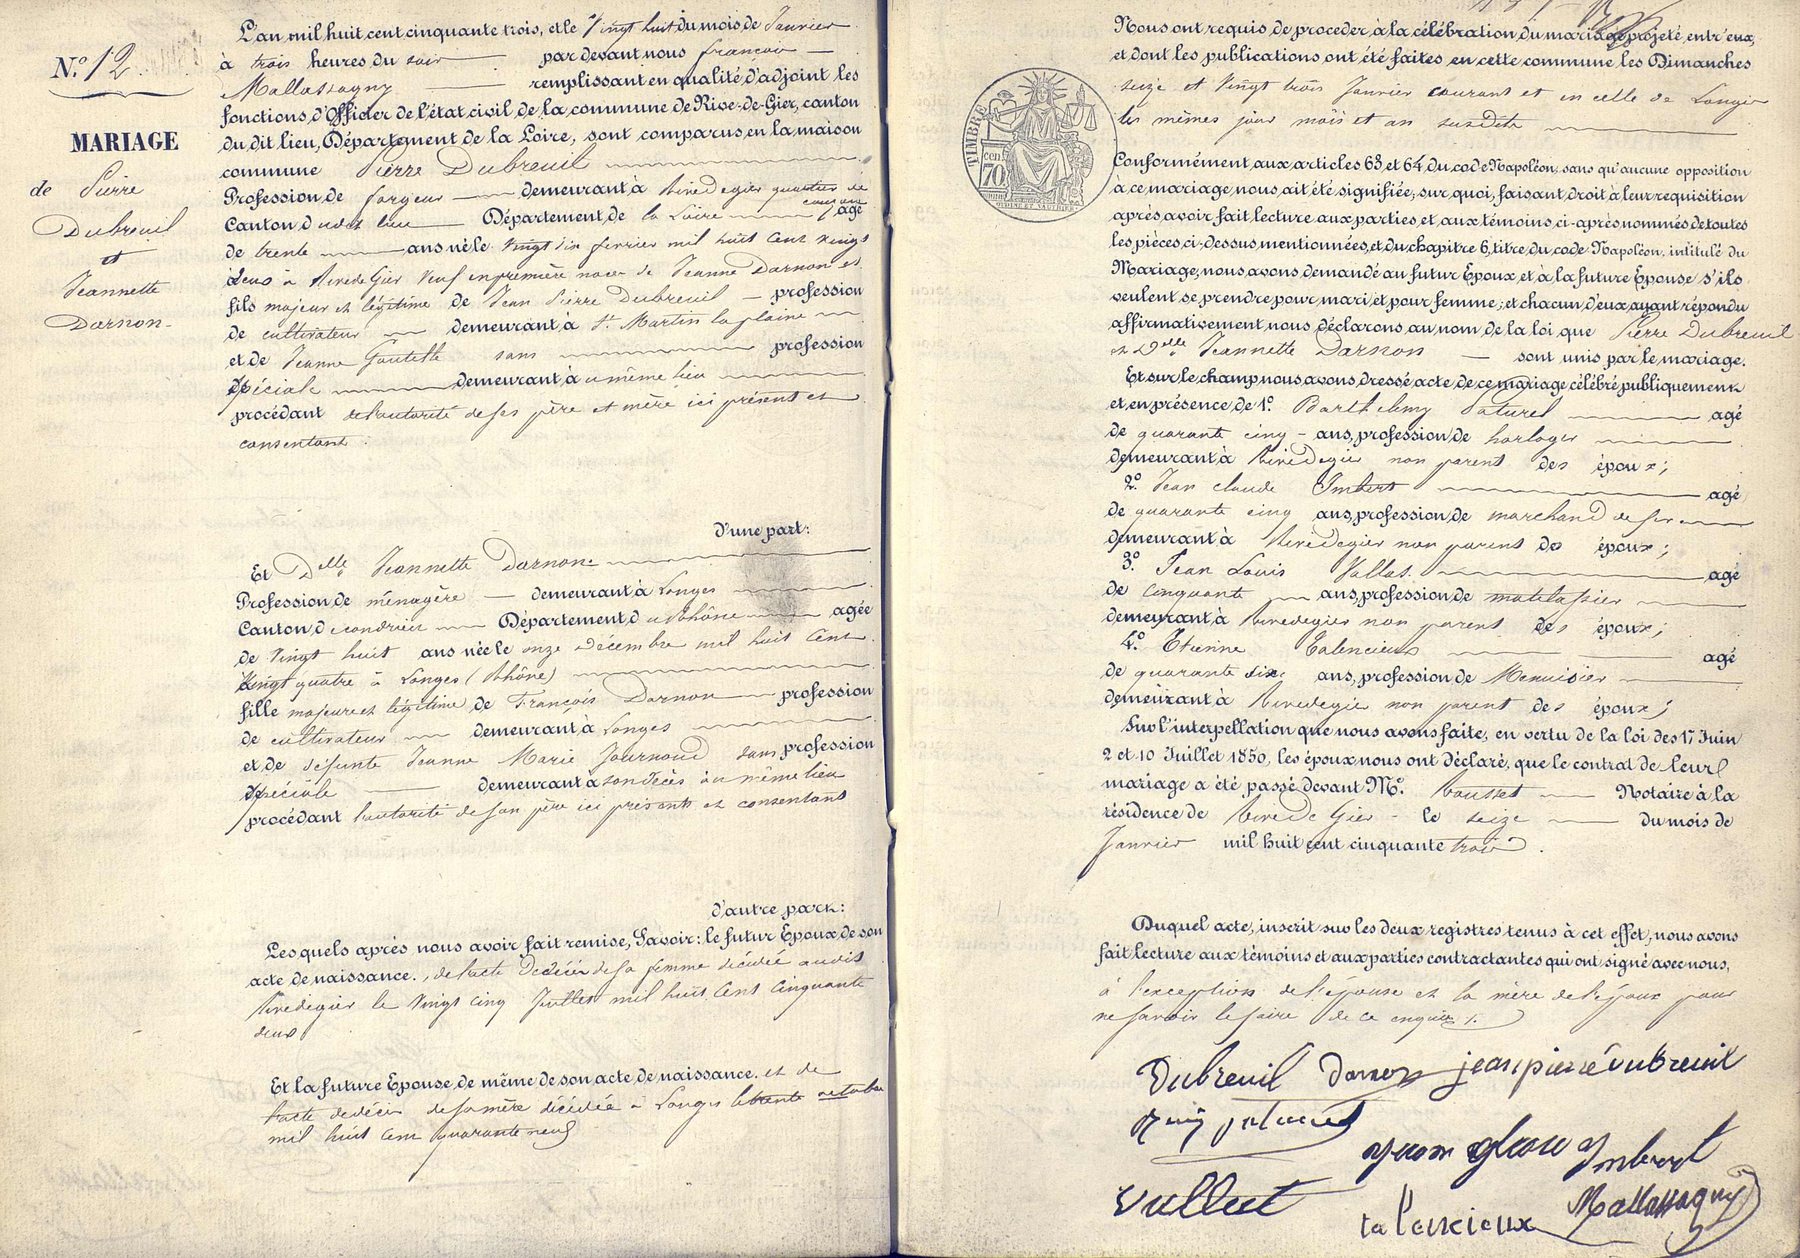 N.º 12
MARIAGE
de Pierre
Dubreuil
et
Jeannette
Darnon
L'an mil huit cent cinquante trois, et le Vingt huit du mois de Janvier
à trois heures du soir par devant nous françois
Mallassagny remplissant en qualité d'adjoint les
fonctions d'Officier de l'état civil de la commune de Rive-de-Gier, canton
du dit lieu, Département de la Loire, sont comparus en la maison
commune Pierre Dubreuil
Profession de forgeur demeurant à Rivedegier quartier de
couzon
Canton dudit lieu Département de la Loire agé
de trente ans né le Vingt six fevrier mil huit cent vingt
deux à Rivedegier Veuf en première noce de Jeanne Darnon et
fils majeur et légitime de Jean Pierre Dubreuil profession
de cultivateur demeurant à St Martin la plaine
et de Jeanne sans profession
spéciale demeurant au même lieu
procédant de l'autorité de ses père et mère ici présent et
consentant.
D'une part:
Et Delle Jeannette Darnon
Profession de ménagère demeurant à Longes
Canton de condrieu Département du Rhône agée
de Vingt huit ans née le onze décembre mil huit cent
Vingt quatre à Longes (Rhône)
fille majeure et légitime de François Darnon profession
de cultivateur demeurant à Longes
et de défunte Jeanne Marie Journoud sans profession
spéciale demeurant à son décès au même lieu
procédant l'autorité de son père ici présent et consentant
D'autre part:
Lesquels après nous avoir fait remise, Savoir: le futur Epoux, de son
acte de naissance, de l'acte de décès de sa femme décédée audit
Rivedegier le Vingt cinq Juillet mil huit cent cinquante
deux
Et la future Epouse, de même de son acte de naissance. et de
l'acte de décès de sa mère décédée à Longes le trente octobre
mil huit cent quarante neuf
Nous ont requis de procéder à la célébration du mariage projeté entr'eux,
et dont les publications ont été faites en cette commune les Dimanches
seize et Vingt trois Janvier courant et en celle de Longes
les mêmes jour mois et an susdits
TIMBRE
cen.
70
Conformément aux articles 63 et 64 du code Napoléon, sans qu'aucune opposition
à ce mariage nous ait été signifiée, sur quoi, faisant droit à leur requisition
après avoir fait lecture aux parties et aux témoins ci-après nommés de toutes
les pièces ci-dessus mentionnées, et du chapitre 6, titre du code Napoléon, intitulé du
Mariage, nous avons demandé au futur Epoux et à la future Epouse s'ils
veulent se prendre pour mari et pour femme; et chacun d'eux ayant répondu
affirmativement nous déclarons au nom de la loi que Pierre Dubreuil
et Delle Jeannette Darnon sont unis par le mariage.
Et sur le champ nous avons dressé acte de ce mariage célébré publiquement
et en présence de 1.º Barthelemy Paturel agé
de quarante cinq ans, profession de horloger
demeurant à Rivedegier non parent des époux;
2.º Jean Claude Imbert agé
de quarante cinq ans, profession de marchand de fer
demeurant à Rivedegier non parent des époux;
3.º Jean Louis Vallas agé
de cinquante ans, profession de matelassier
demeurant à Rivedegier non parent des époux;
4.º Etienne Talencieux agé
de quarante six ans, profession de Menuisier
demeurant à Rivedegier non parent des époux;
Sur l'interpellation que nous avons faite, en vertu de la loi des 17 Juin
2 et 10 Juillet 1850, les époux nous ont déclaré, que le contrat de leur
mariage a été passé devant M.e Rousset Notaire à la
résidence de Rive de Gier le seize du mois de
Janvier mil huit cent cinquante trois.
Duquel acte, inscrit sur les deux registres tenus à cet effet, nous avons
fait lecture aux témoins et aux parties contractantes qui ont signé avec nous,
à l'exception de l'épouse et la mère de l'époux pour
ne savoir le faire de ce enquis.
Dubreuil Darnon jean pierre dubreuil
paturel
Jean Imbert
talencieux Mallassagny